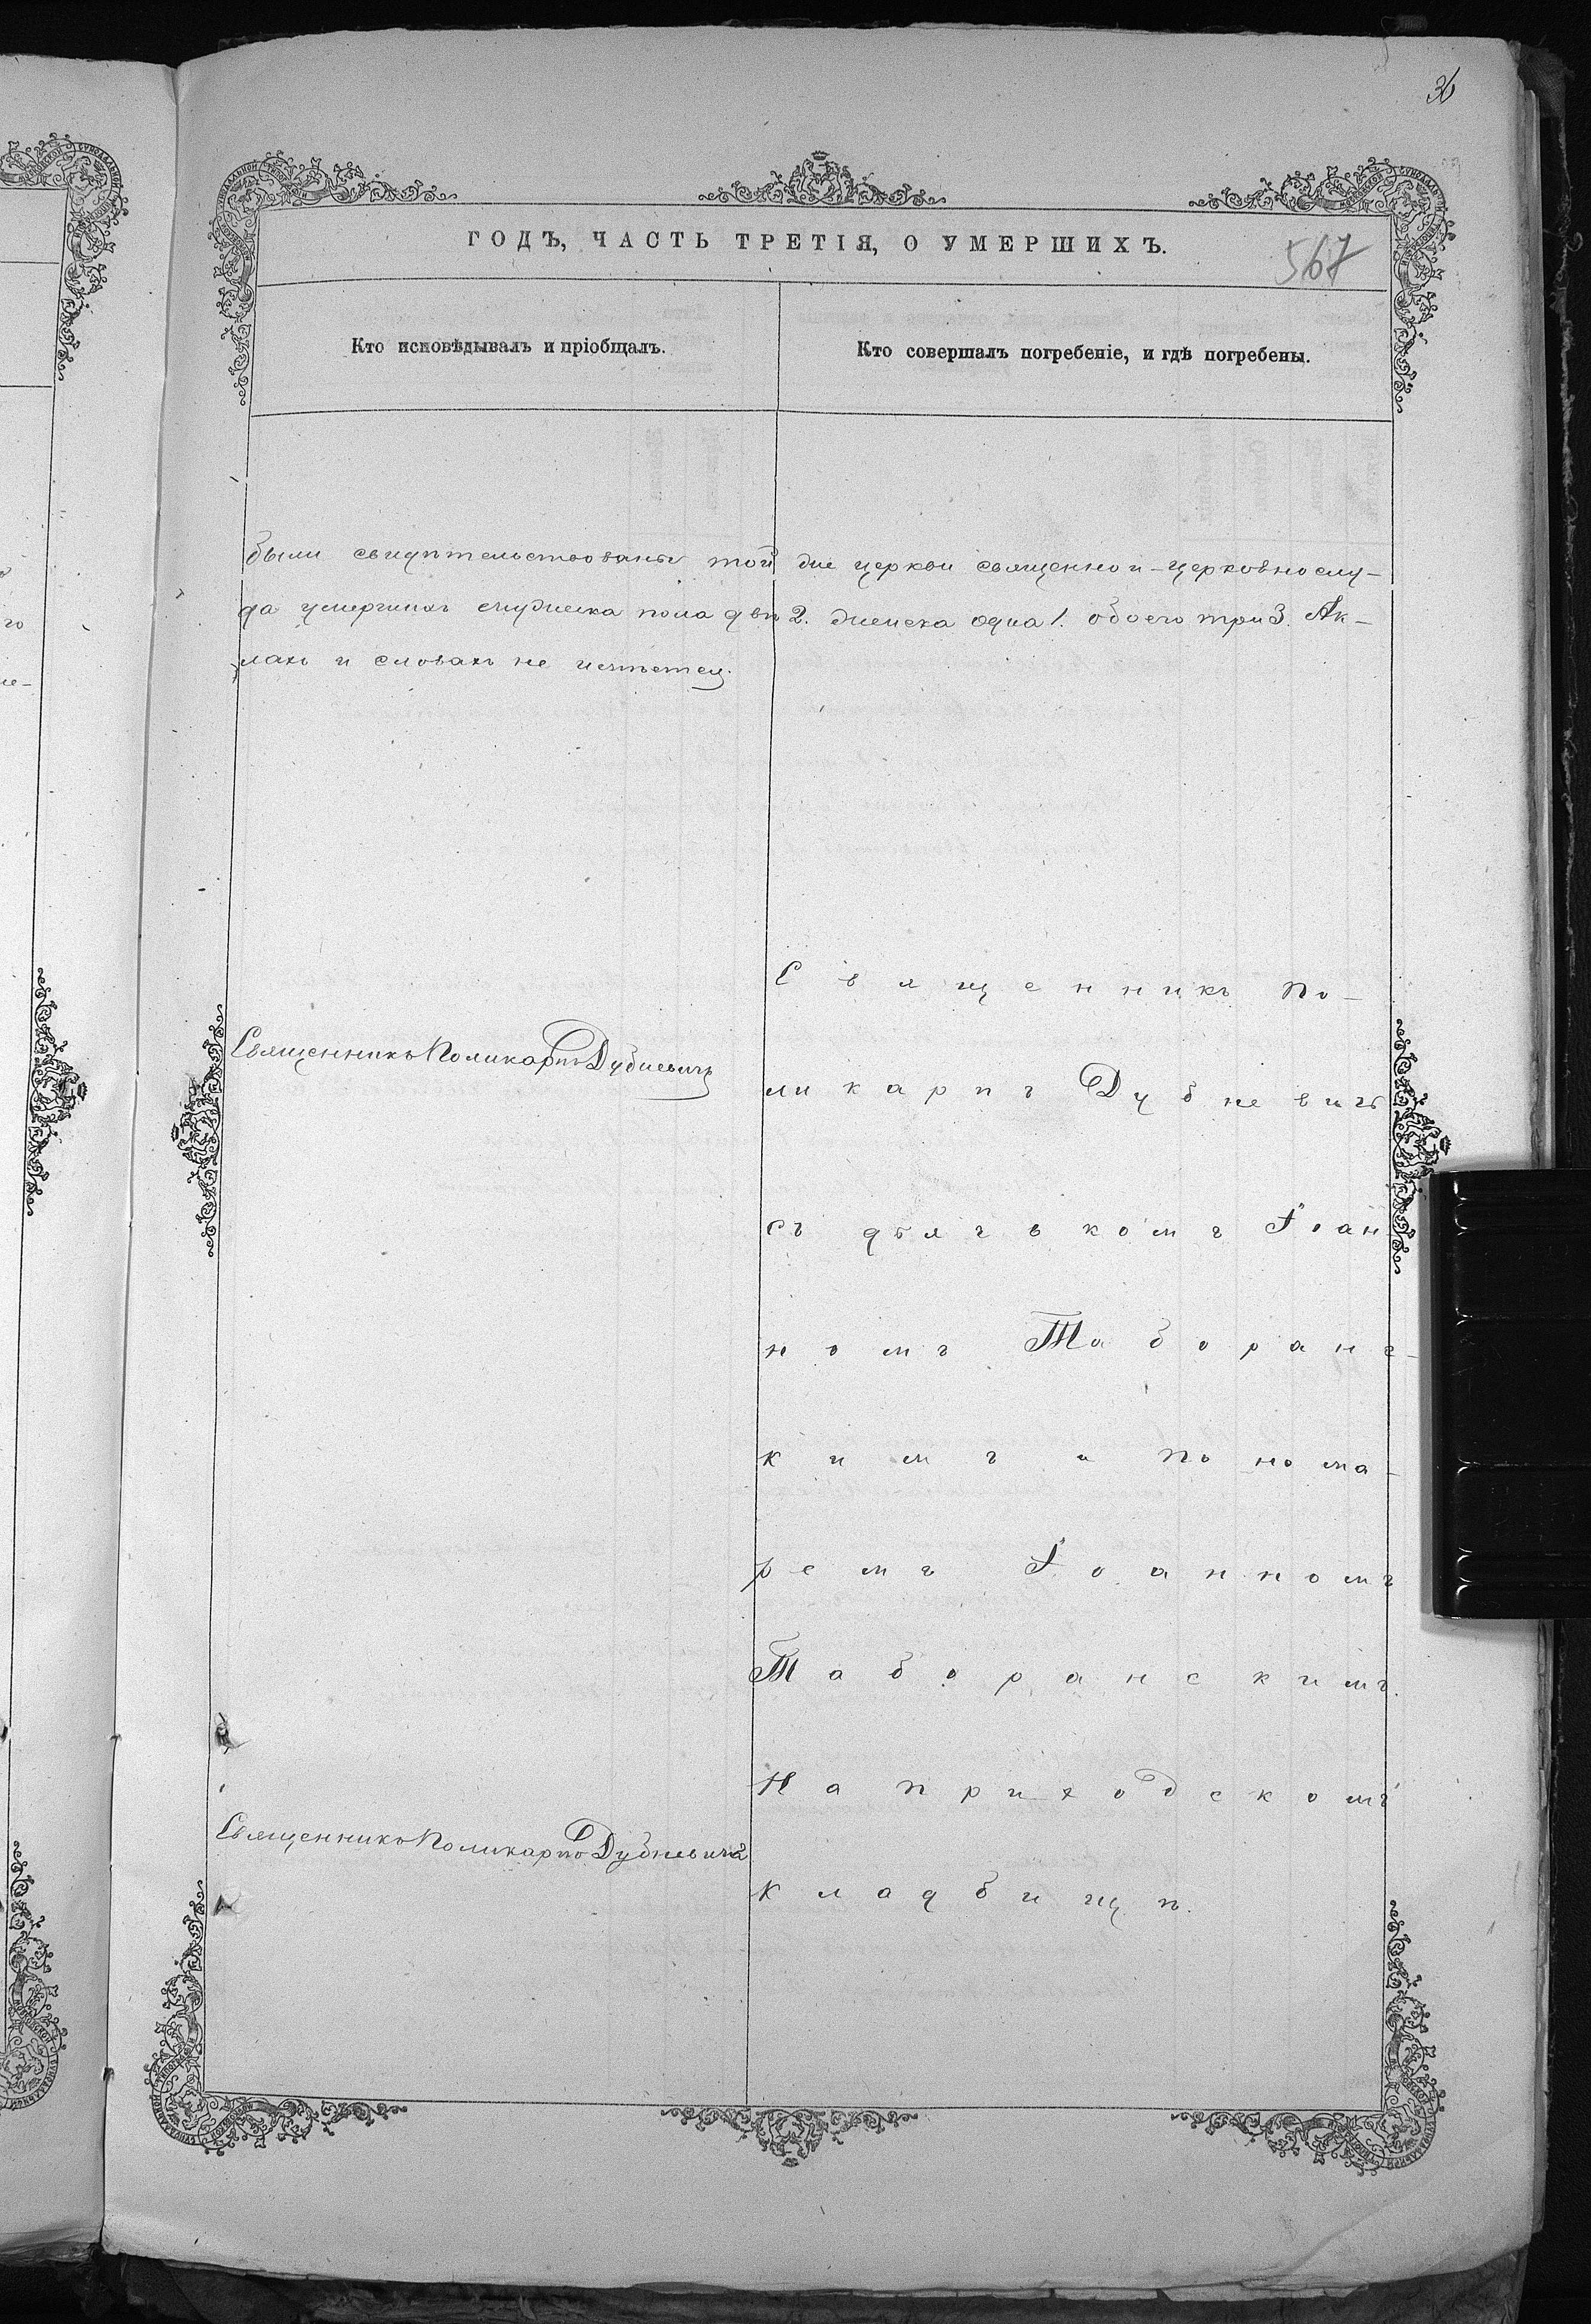 36
ГОДЪ, ЧАСТЬ ТРЕТІЯ, О УМЕРШИХЪ.
567
Кто исповѣдывалъ и пріобщалъ.
Кто совершалъ погребеніе, и гдѣ погребены.
были свидѣтельствованы той же церкви священно и-церковнослу-
да умершихъ мужеска пола двѣ 2. женска одна 1. обоего три 3. Ак-
лахъ и словахъ не исчтетсѧ.
Священникъ Поликарпъ Дубневичъ
Священникъ По-
ликарпъ Дубневичъ
съ дьячькомъ Іоан-
номъ Таборанс-
кимъ и понома-
ремъ Іоанномъ
Таборанскимъ.
На приходскомъ
кладбищѣ.
Священникъ Поликарпъ Дубневичъ